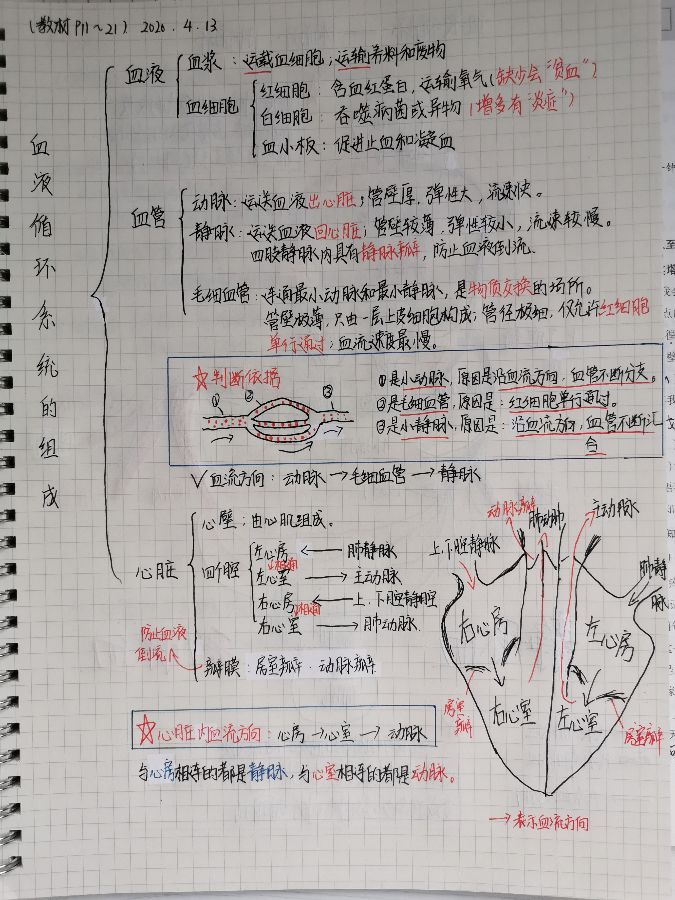 (教材 P11~21) 2020.4.13
血液循环系统的组成
血液
血浆：运载血细胞；运输养料和废物
血细胞
红细胞：含血红蛋白，运输氧气(缺少会"贫血")
白细胞：吞噬病菌或异物(增多有"炎症")
血小板：促进止血和凝血
血管
动脉：运送血液出心脏；管壁厚，弹性大，流速快。
静脉：运送血液回心脏；管壁较薄，弹性较小，流速较慢。
四肢静脉内具有静脉瓣，防止血液倒流.
毛细血管：连通最小动脉和最小静脉，是物质交换的场所。
管壁极薄，只由一层上皮细胞构成；管径极细，仅允许红细胞
单行通过；血流速度最慢。
☆判断依据
① ② ③
①是小动脉，原因是沿血流方向，血管不断分支。
②是毛细血管，原因是：红细胞单行通过。
③是小静脉，原因是：沿血流方向，血管不断汇
合
√血流方向：动脉→毛细血管→静脉
心脏
心壁：由心肌组成。
四个腔
左心房←肺静脉
相通
左心室→主动脉
右心房←上、下腔静腔
相通
右心室→肺动脉
防止血液
倒流
瓣膜：房室瓣、动脉瓣
☆心脏内血流方向：心房→心室→动脉
与心房相连的都是静脉，与心室相连的都是动脉。
动脉瓣
肺动脉
主动脉
上、下腔静脉
肺静
脉
右心房
左心房
房室
瓣
右心室
左心室
房室瓣
→表示血流方向